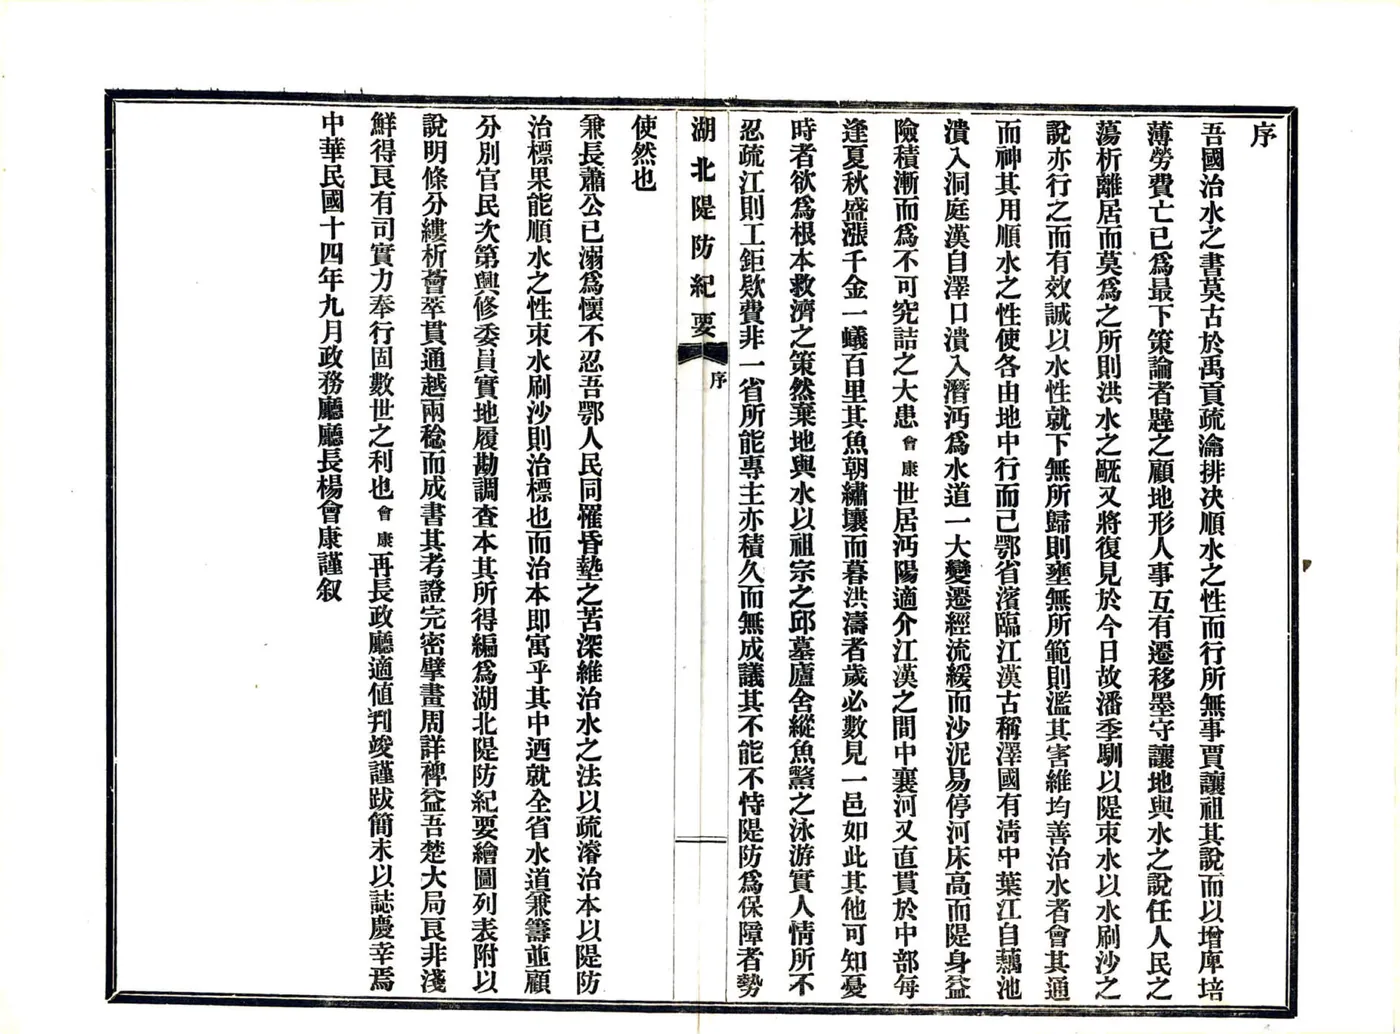 序
吾國治水之書莫古於禹貢疏瀹排決順水之性而行所無事賈讓祖其說而以增庳培
薄勞費亡已爲最下策論者韙之顧地形人事互有遷移墨守讓地與水之說任人民之
蕩析離居而莫爲之所則洪水之旤又將復見於今日故潘季馴以隄束水以水刷沙之
說亦行之而有效誠以水性就下無所歸則壅無所範則濫其害維均善治水者會其通
而神其用順水之性使各由地中行而已鄂省濱臨江漢古稱澤國有清中葉江自藕池
潰入洞庭漢自澤口潰入潛沔爲水道一大變遷經流緩而沙泥易停河床高而隄身益
險積漸而爲不可究詰之大患會康世居沔陽適介江漢之間中襄河又直貫於中部每
逢夏秋盛漲千金一蟻百里其魚朝繡壤而暮洪濤者歲必數見一邑如此其他可知憂
時者欲爲根本救濟之策然棄地與水以祖宗之邱墓廬舍縱魚鱉之泳游實人情所不
忍疏江則工鉅欵費非一省所能專主亦積久而無成議其不能不恃隄防爲保障者勢
湖北隄防紀要
序
使然也
兼長蕭公已溺爲懷不忍吾鄂人民同罹昏墊之苦深維治水之法以疏濬治本以隄防
治標果能順水之性束水刷沙則治標也而治本即寓乎其中迺就全省水道兼籌並顧
分別官民次第興修委員實地履勘調查本其所得編爲湖北隄防紀要繪圖列表附以
說明條分縷析薈萃貫通越兩稔而成書其考證完密擘畫周詳裨益吾楚大局良非淺
鮮得良有司實力奉行固數世之利也會康再長政廳適値刋竣謹跋簡末以誌慶幸焉
中華民國十四年九月政務廳廳長楊會康謹叙